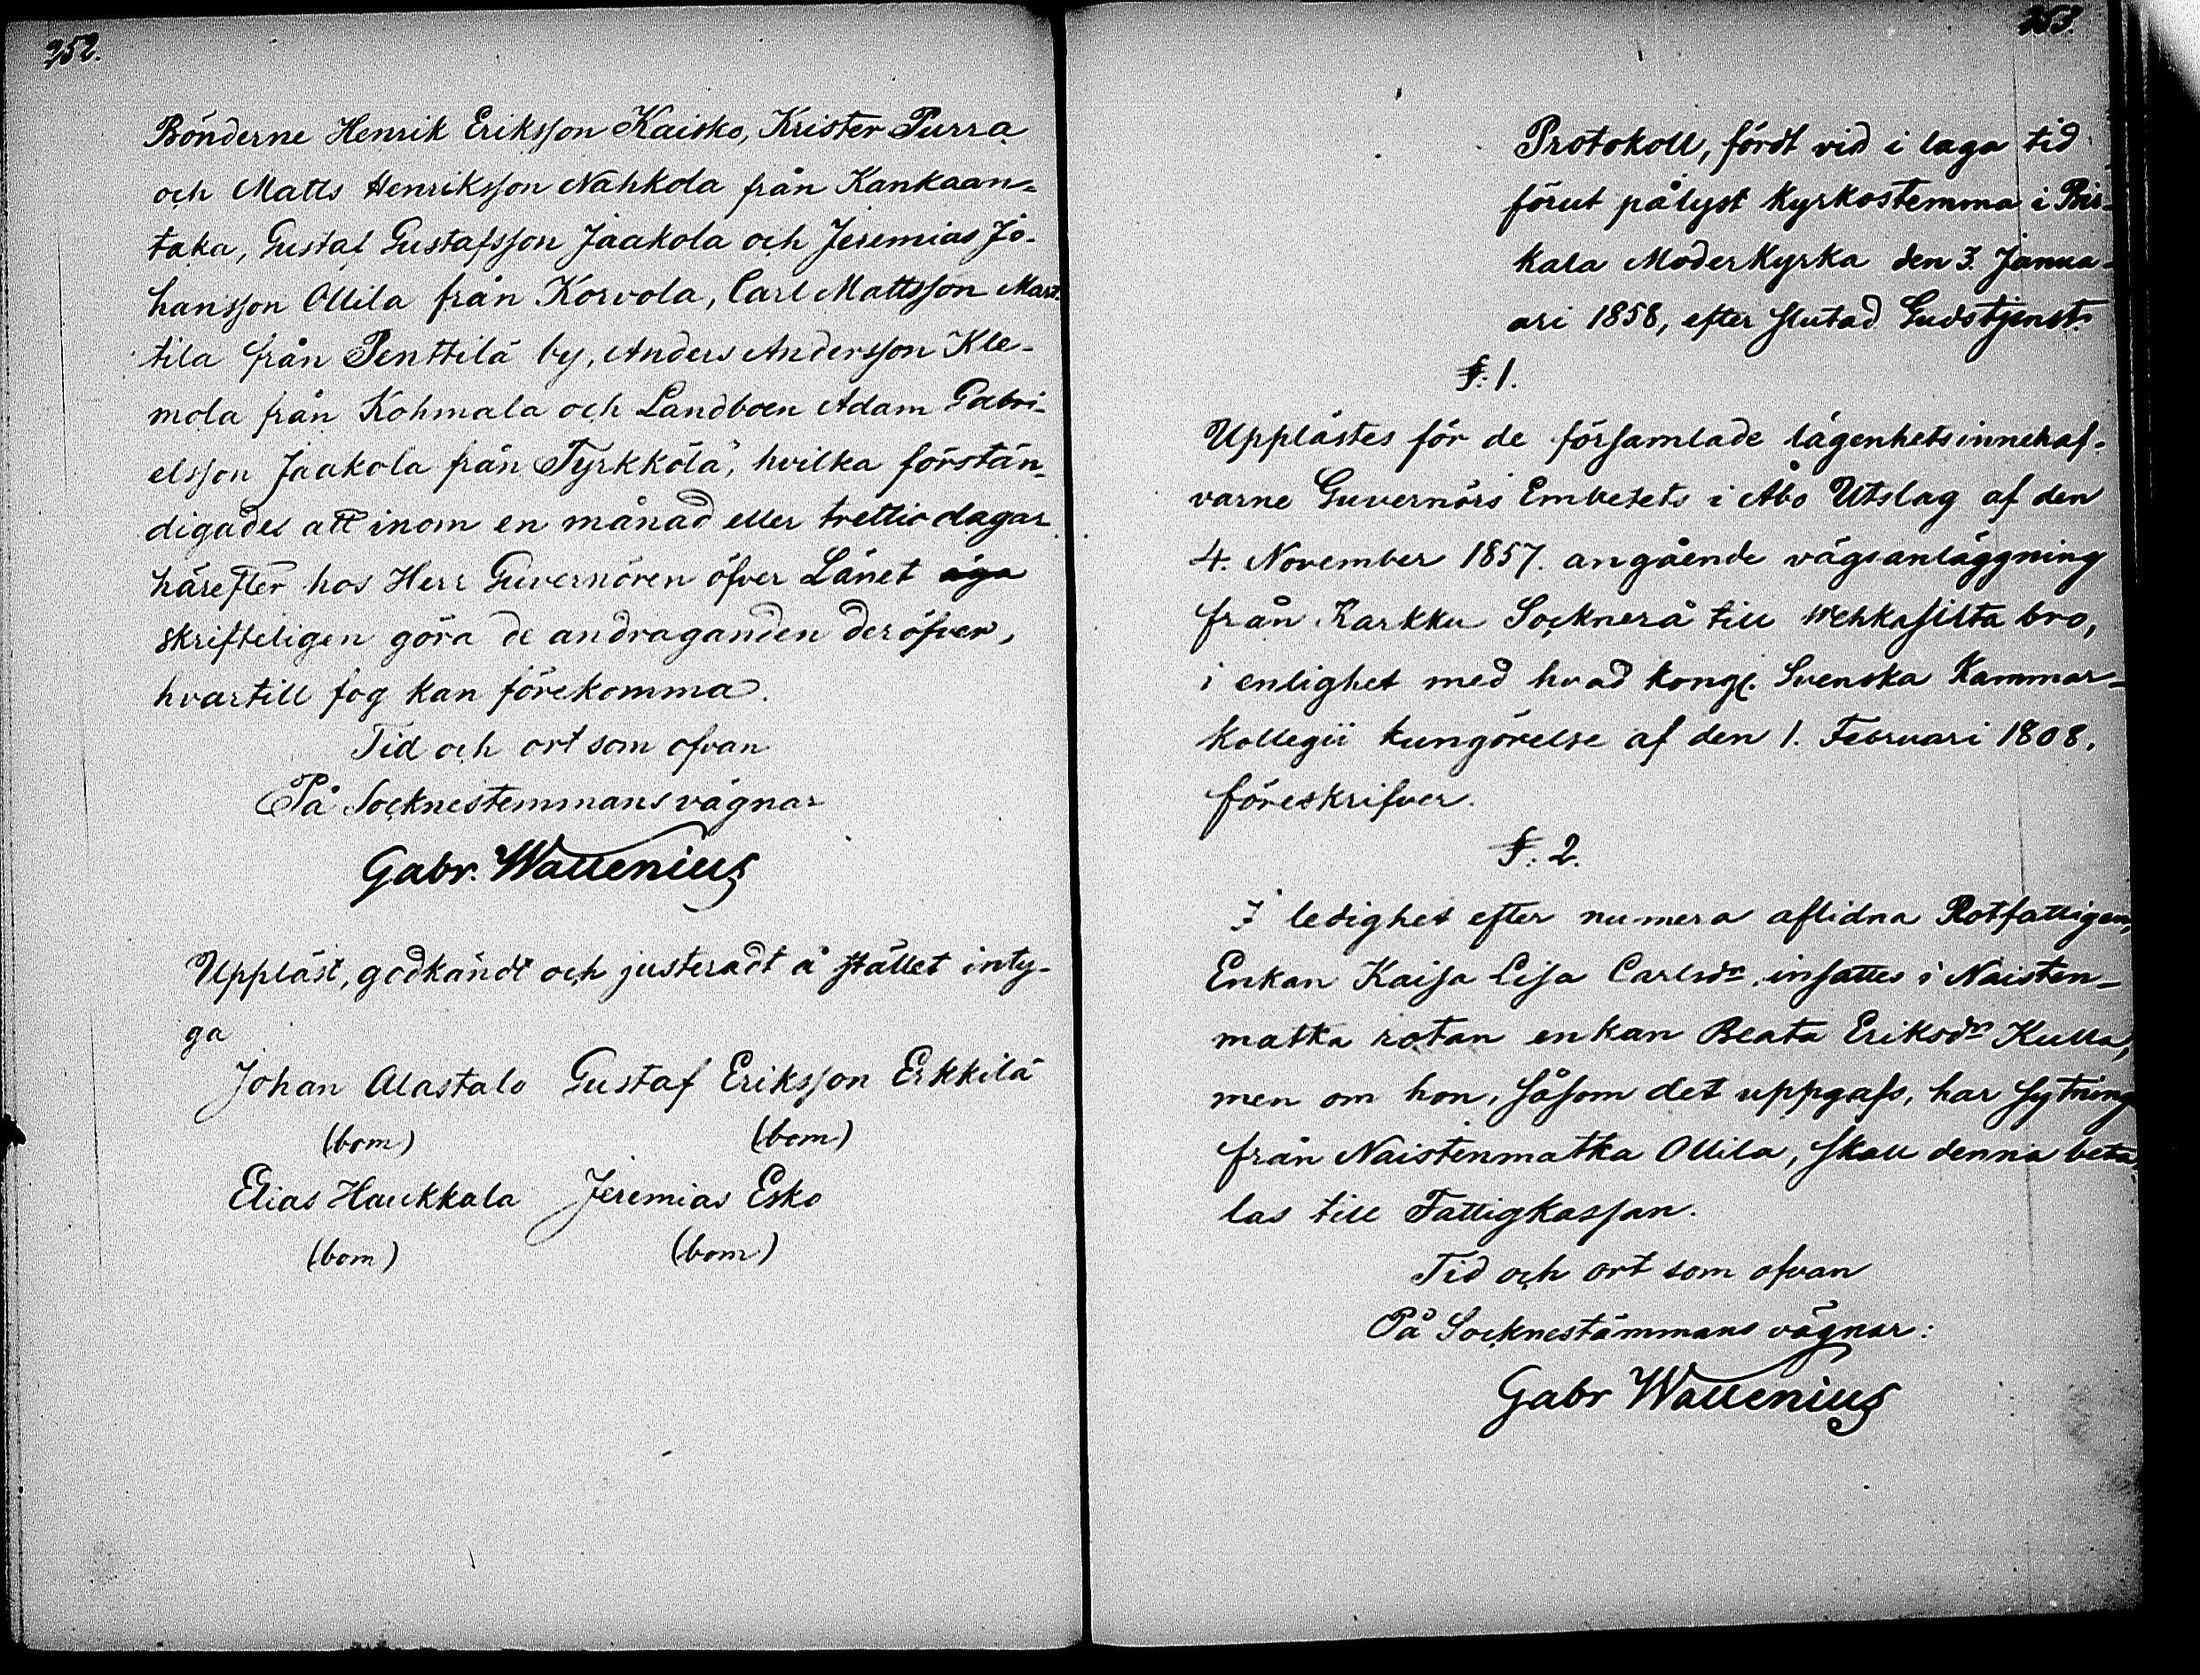 252.
Bönderne Henrik Eriksson Kaisko, Krister Purra
och Matts Henriksson Nahkola från Kankaan-
taka, Gustaf Gustafsson Jaakola och Jeremias Jo-
hansson Ollila från Korvola, Carl Mattsson Mart-
tila från Penttilä by, Anders Andersson Kle-
mola från Kohmala och Landboen Adam Gabri-
elsson Jaakola från Tyrkkölä, hvilka förstän-
digades att inom en månad eller trettio dagar
härefter hos Herr Guvernören öfver Länet äga
skrifteligen göra de andraganden deröfver,
hvartill fog kan förekomma.
Tid och ort som ofvan
På Socknestemmans vägnar
Gabr. Wallenius
Uppläst, godkändt och justeradt å stället inty-
ga
Johan Alastalo Gustaf Eriksson Erkkilä
(bom) (bom)
Elias Haukkala Jeremias Esko
(bom) (bom)
253.
Protokoll, fördt vid i laga tid
förut pålyst Kyrkostemma i Bir-
kala Moderkyrka den 3. Janua-
ari 1858, efter slutad Gudstjenst.
§. 1.
Upplästes för de församlade lägenhetsinnehaf-
varne Guvernörs Embetets i Åbo Utslag af den
4. November 1857. angående vägsanläggning
från Karkku Socknerå till Wehkasilta bro,
i enlighet med hvad kongl. Svenska Kammar-
kollegii kungörelse af den 1. Februari 1808.
föreskrifver.
§. 2.
I ledighet efter numera aflidna Rotfattigen,
Enkan Kaisa Lisa Carlsdr. insattes i Naisten-
matka rotan enkan Beata Eriksdr Kulla,
men om hon, såsom det uppgafs, har sytning
från Naistenmatka Ollila, skall denna beta-
las till Fattigkassan.
Tid och ort som ofvan
På Socknestämmans vägnar:
Gabr Wallenius